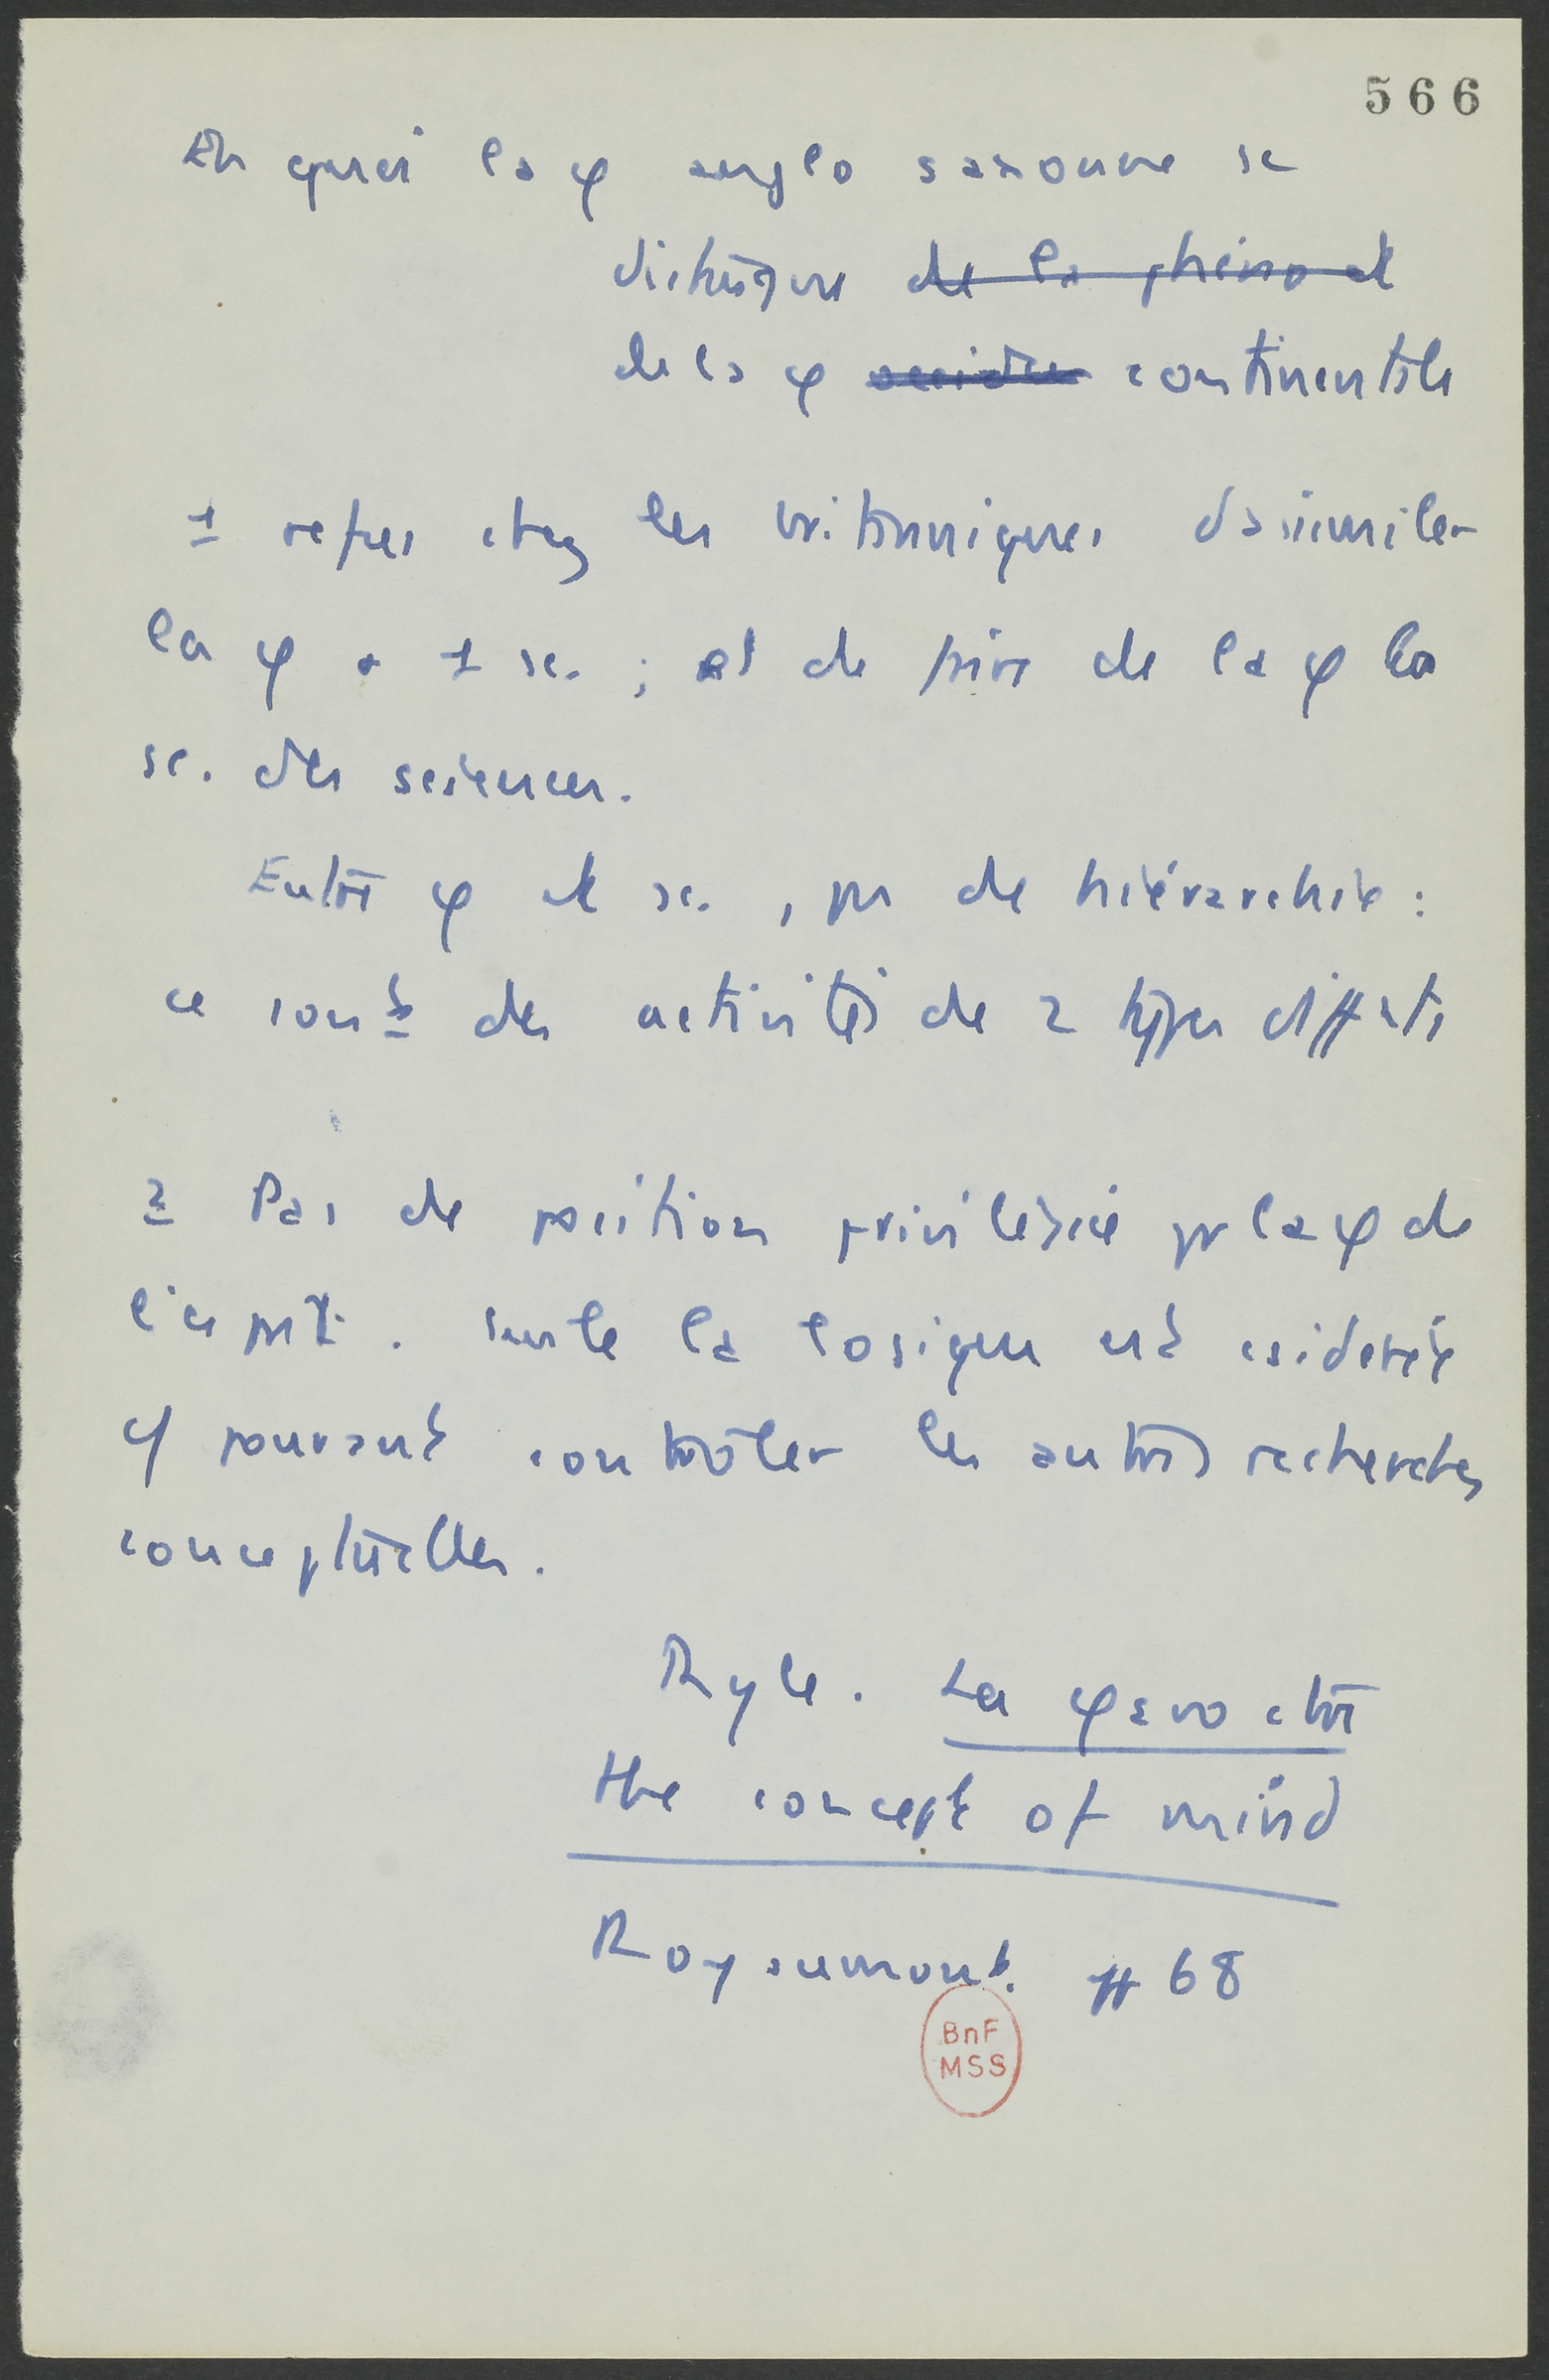 566
En quoi la φ anglo saxonne se
distingue de la phéno et
de la φ continentale
1 refus chez les britanniques d'assimiler
la φ a 1 sc. ; et de faire de la φ la
sc. des sciences.
Entre φ et sc., pas de hiérarchie :
ce sont des activités de 2 types diffts
2 Pas de position privilégiée pr la φ de
l'esprit. Seule la logique est csidérée
cf pouvant contrôler les autres recherches
conceptuelles.
Ryle. La φ ctre
the concept of mind
Royaumont. # 68
BnF
MSS